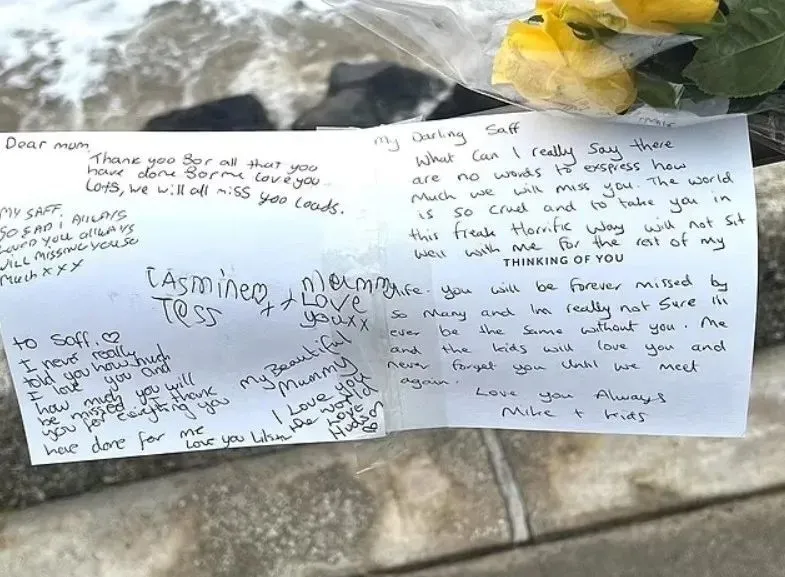 Dear mum
Thank you for all that you
have done for me love you
Lots, we will all miss you Loads.
MY SAFF.
SO SAD I ALWAYS
loved you always
will missing you so
Much xxx
Tess
Mummy
Love
you xx
to Saff. ♡
I never really
told you how much
I love you and
how much you will
be missed
thank
you for everything you
have done for me
Love you
My Beautiful
Mummy
I Love you
the world
Love
Hudson
My Darling Saff
What Can I really Say there
are no words to exspress how
Much we will miss you. The world
is so cruel and to take you in
this freak Horrific way will not sit
well with me for the rest of my
THINKING OF YOU
life. you will be forever missed by
so Many and Im really not Sure Ill
ever be the same without you. Me
and the kids will love you and
never forget you Until we meet
again.
Love you Always
Mike + kids